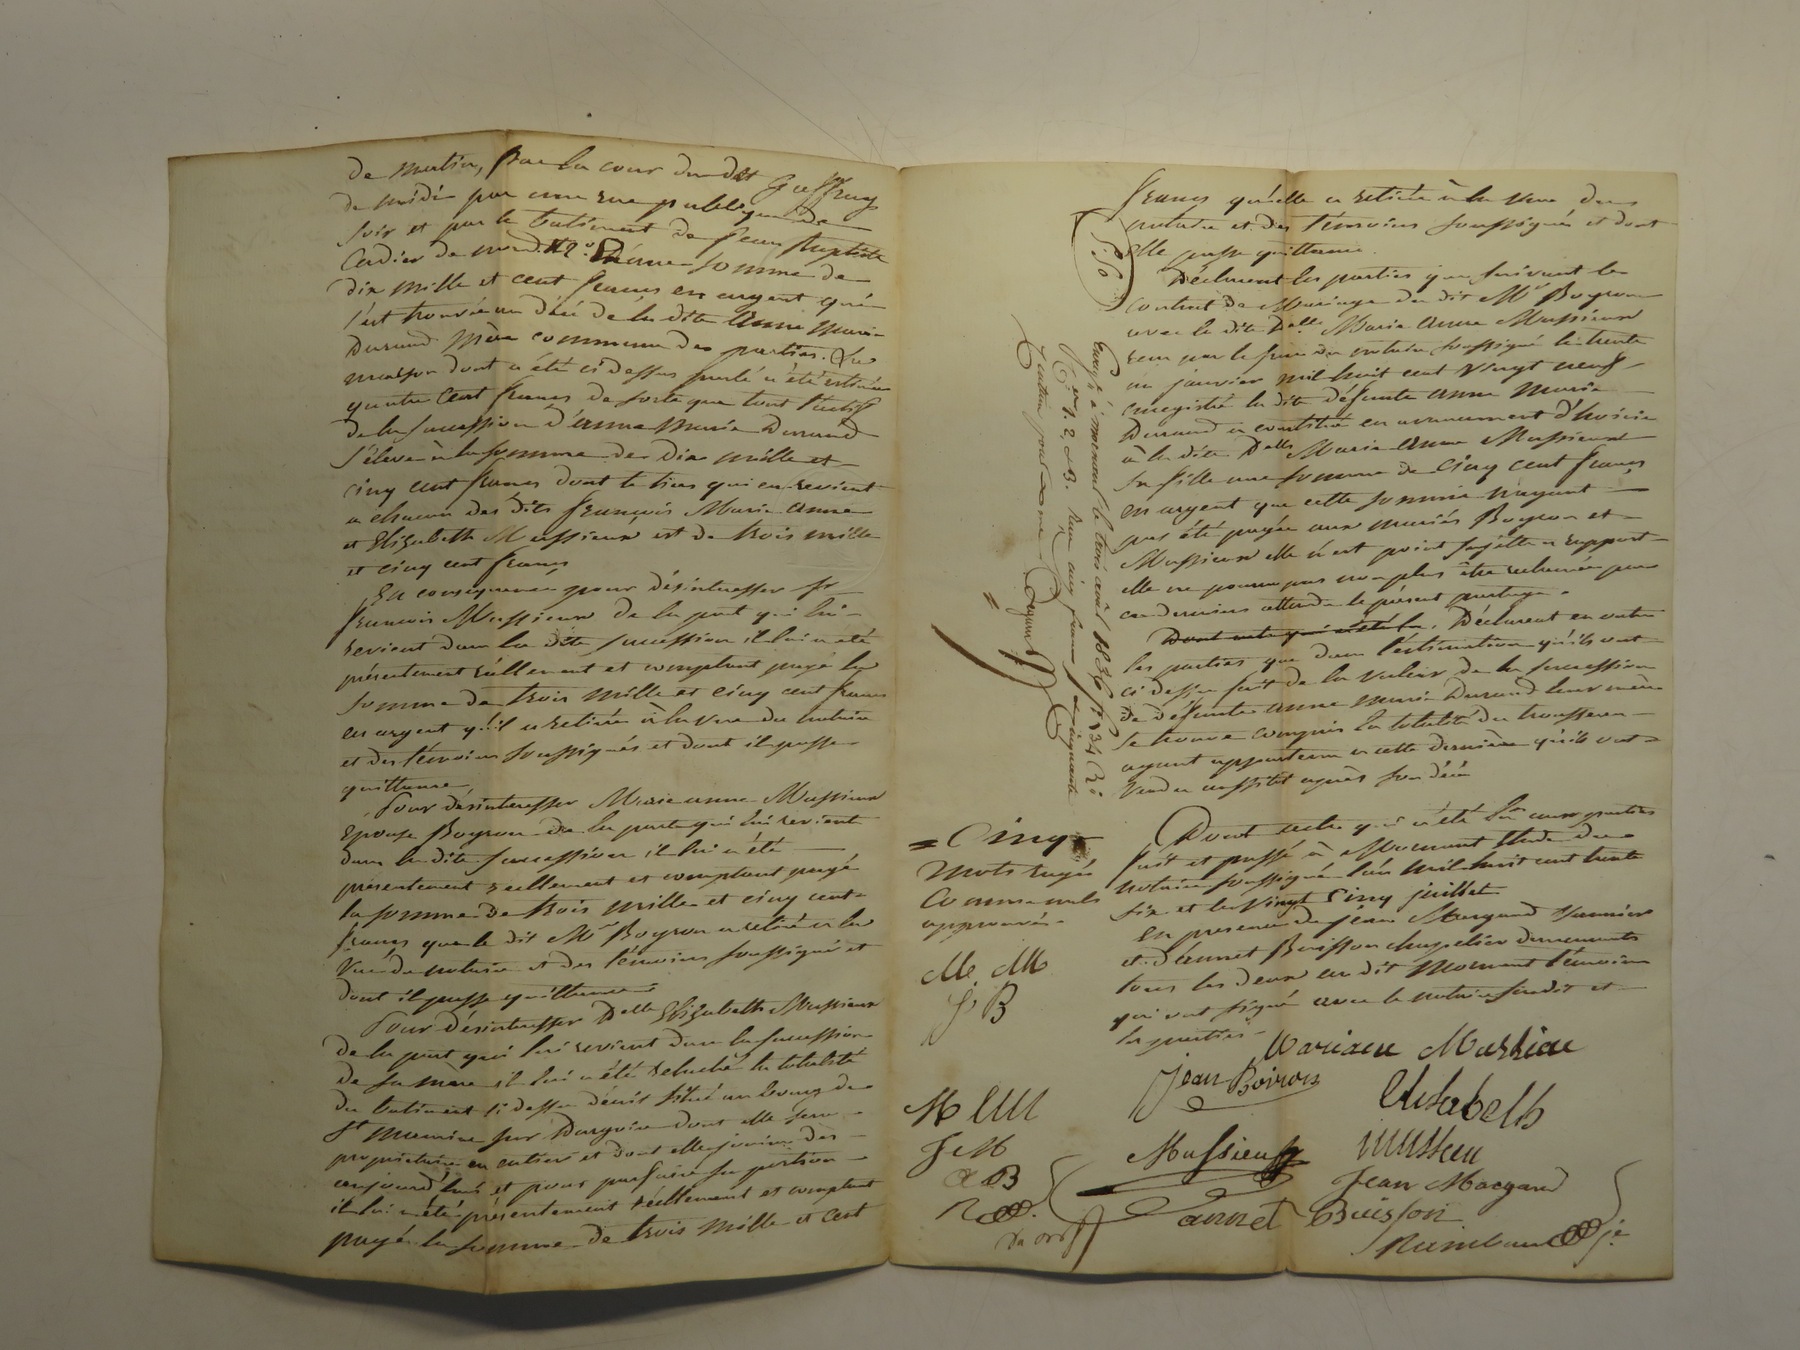 de matin, par la cour du dit Geffrug
de midi par une rue publique de
soir et par le batiment de Jean Baptiste
Cardier de nord. N.2° D'une somme de
dix mille et cent francs en argent qui
s'est trouvée au décé de la dite Anne Marie
Durand Mère commune des parties. La
maison dont a été ci dessus parlé a été estimée
quatre cent francs de sorte que tout l'actif
de la succession d'Anne Marie Durand
s'éleve à la somme de Dix mille et
cinq cent francs dont le tiers qui en revient
a chacun des dits François Marie Anne
et Elizabeth Massieux est de trois mille
et cinq cent francs
En conséquence pour désintéresser sr
François Massieux de la part qui lui
revient dans la dite succession il lui a été
présentement réellement et comptant payé la
somme de trois mille et cinq cent francs
en argent qu'il a retirée à la vue du notaire
et des témoins soussignés et dont il passe
quittance
Pour désintéresser Marie anne Massieux
Épouse Boyron de la part qui lui revient
dans la dite succession il lui a été
présentement réellement et comptant payé
la somme de trois mille et cinq cent
francs que le dit Mr Boyron a retirée à la
vue du notaire et des témoins soussigné et
dont il passe quittance
Pour désintéresser Delle Elizabeth Massieux
de la part qui lui revient dans la succession
de sa mère il lui a été relaché la totalité
du batiment ci dessus décrit situé au bourg de
St Maurice sur Dargoire dont elle sera
propriétaire en entier et dont elle jouira dès
aujourd'hui et pour parfaire sa portion
il lui a été présentement réellement et comptant
payé la somme de trois mille et cent
francs qu'elle a retirée à la vue des
notaire et des témoins soussignés et dont
elle passe quittance.
Déclarent les parties que suivant le
contrat de Mariage du dit Mr Boyron
avec la dite Delle Marie Anne Massieux
reçu par le notaire soussigné le trente
un janvier mil huit cent vingt neuf
enregistré la dite défunte Anne Marie
Durand a constitué en avancement d'hoirie
à la dite Delle Marie Anne Massieux
sa fille une somme de Cinq cent francs
en argent que cette somme n'ayant
pas été payée aux mariés Boyron et
Massieux elle n'est point sujette a rapport
elle ne pourra pas non plus être réclamée par
ces derniers attendu le présent partage.
Dont acte qui a été lu. Déclarent en outre
les parties que dans l'estimation qu'ils ont
ci dessus fait de la valeur de la succession
de défunte Anne Marie Durand leur mère
se trouve compris la totalité du trousseau
ayant appartenu a cette dernière qu'ils ont
vendu aussitot après son décé
Dont acte qui a été lu aux parties
fait et passé à Mornant Etude du
notaire soussigné l'an mil huit cent trente
six et le vingt Cinq juillet
en présence de Jean Margand
et d'annet Buisson chapelier demeurants
tous les deux au dit Mornant témoins
qui ont signé avec le notaire susdit et
les parties
= Cinq
mots rayés
Comme nuls
approuvés
M. M
J. B
M EM
F M
J M
a B
Mariane Massieux
Jean Boiron
Elisabeth
massieu
Massieux
Jean Margand
annet Buisson
Rambaud
Enregé à Mornant le trois août 1836 fo 134 Ro
Cses 1. 2. & 3. Reçu cinq francs cinquante